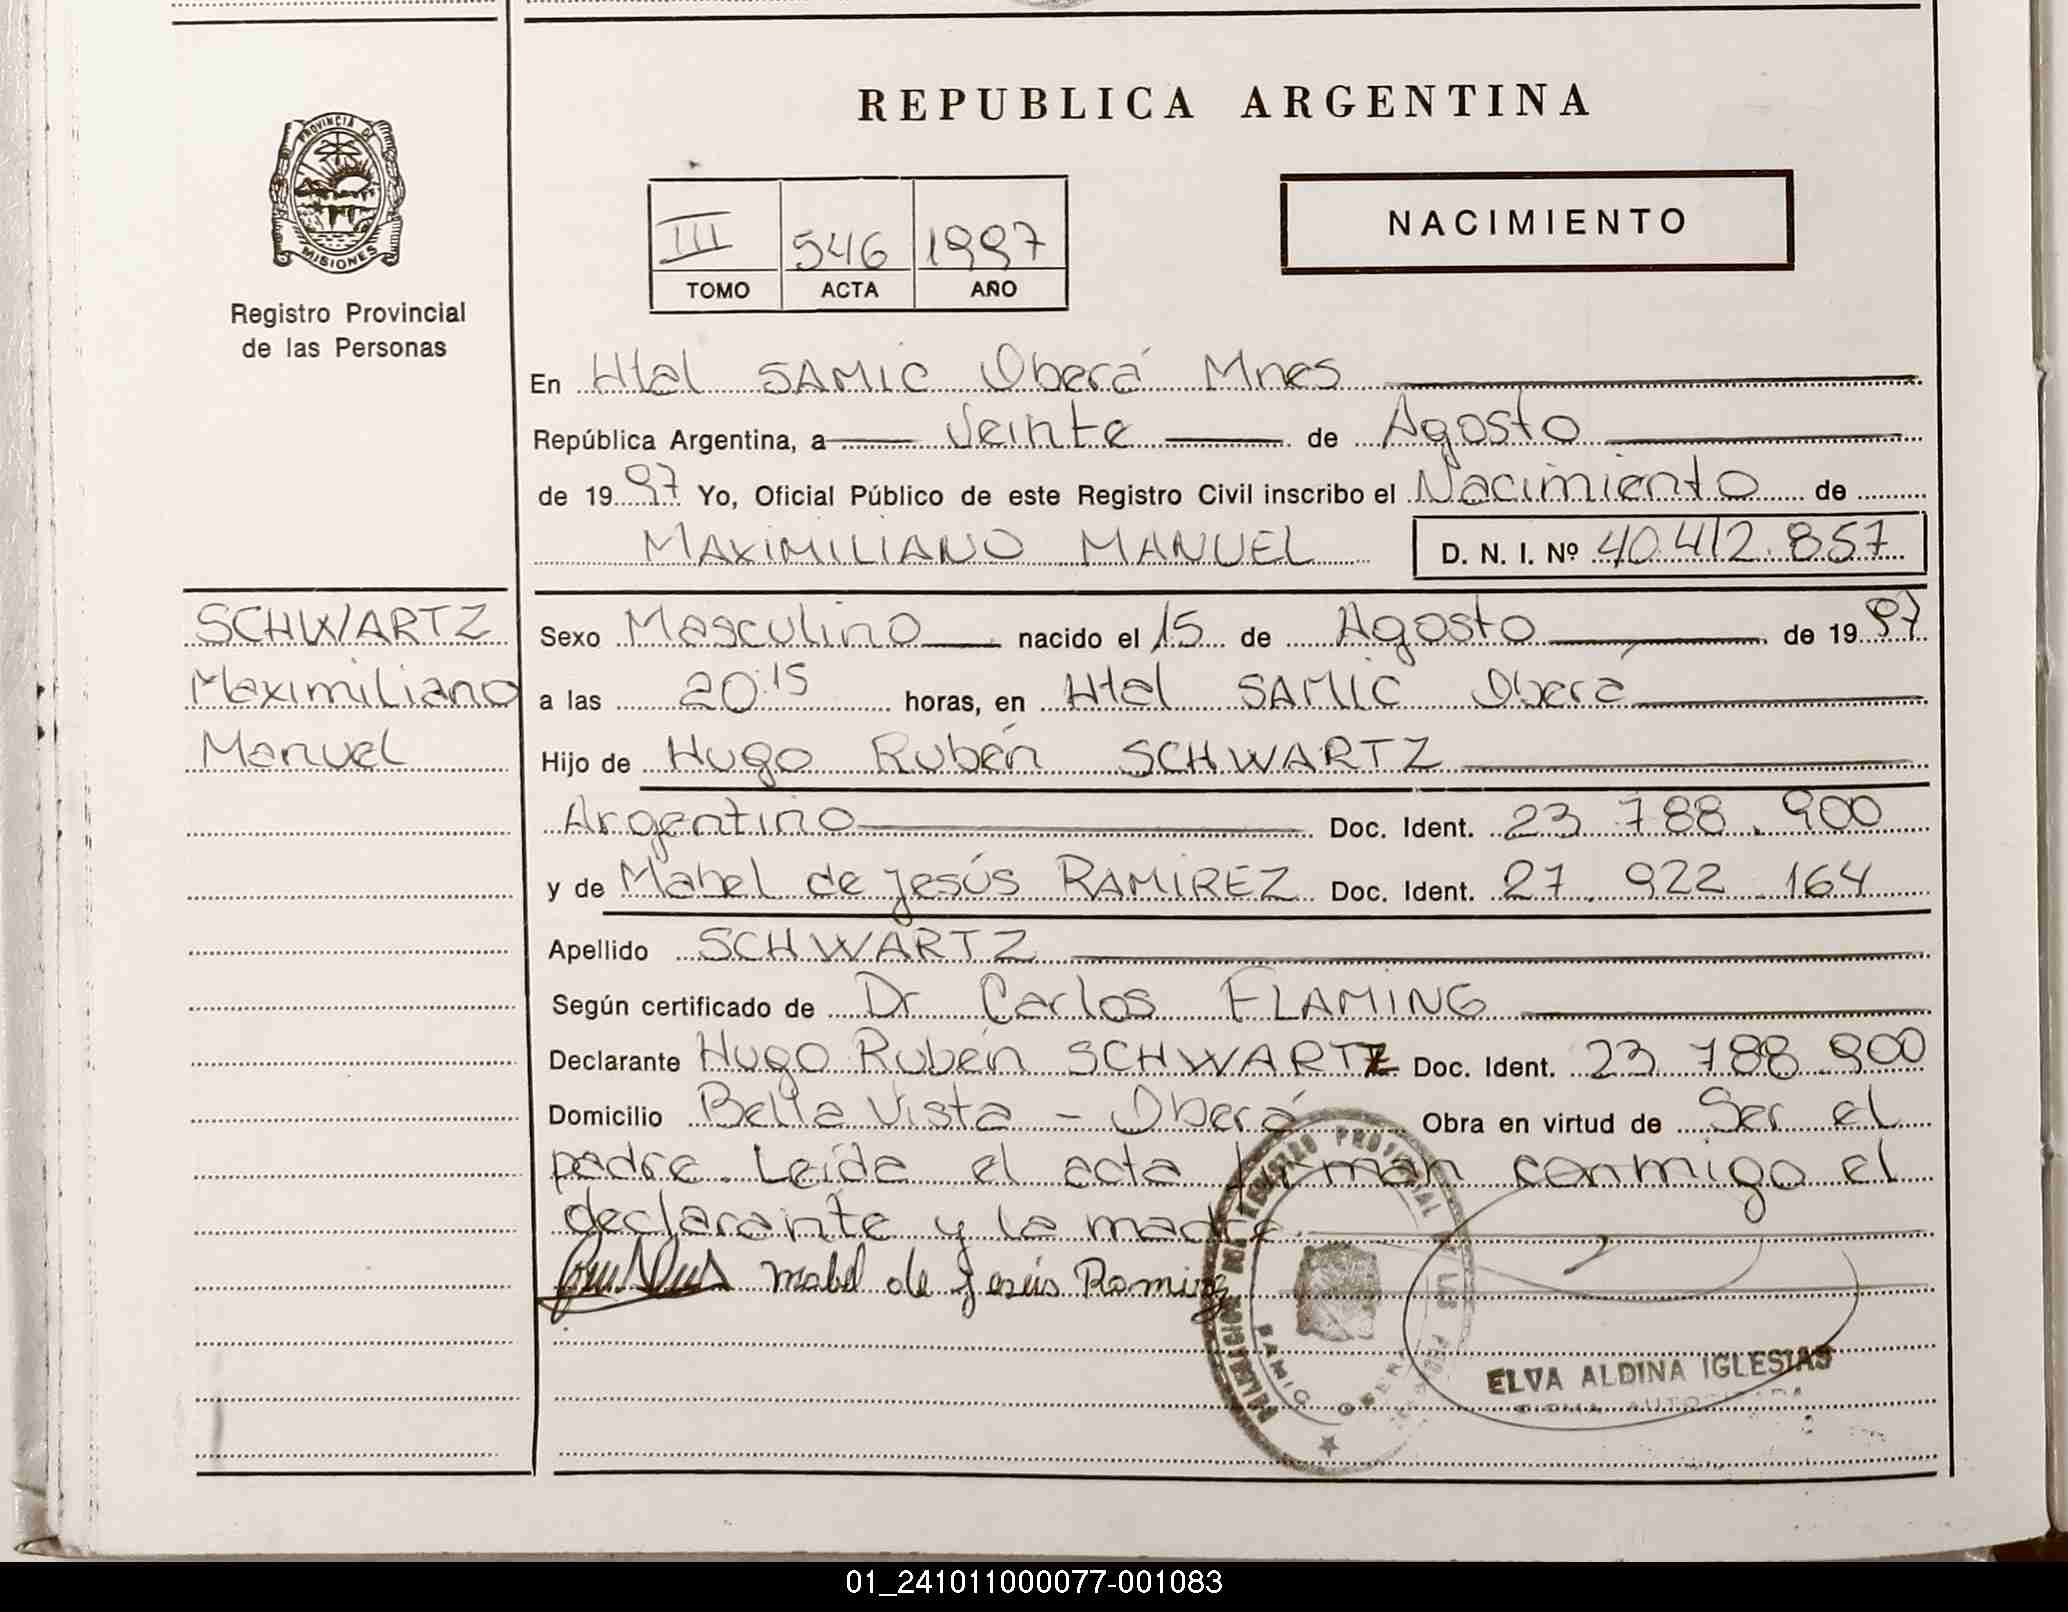 REPUBLICA ARGENTINA
PROVINCIA DE
MISIONES
Registro Provincial
de las Personas
III 546 1997
TOMO ACTA AÑO
NACIMIENTO
En Htal SAMIC Oberá Mnes
República Argentina, a Veinte de Agosto
de 1997 Yo, Oficial Público de este Registro Civil inscribo el Nacimiento de
MAXIMILIANO MANUEL D. N. I. Nº 40.412.857
SCHWARTZ
Maximiliano
Manuel
Sexo Masculino nacido el 15 de Agosto de 1997
a las 20:15 horas, en Htal SAMIC Oberá
Hijo de Hugo Rubén SCHWARTZ
Argentino Doc. Ident. 23.788.900
y de Mabel de Jesús RAMIREZ Doc. Ident. 27.922.164
Apellido SCHWARTZ
Según certificado de Dr Carlos FLAMING
Declarante Hugo Rubén SCHWARTZ Doc. Ident. 23.788.900
Domicilio Bella Vista - Oberá Obra en virtud de Ser el
padre. Leída el acta firman conmigo el
declarante y la madre.
Mabel de Jesús Ramirez
REGISTRO PROVINCIAL DE LAS
SAMIC OBERA
ELVA ALDINA IGLESIAS
FIRMA AUTORIZADA
01_241011000077-001083